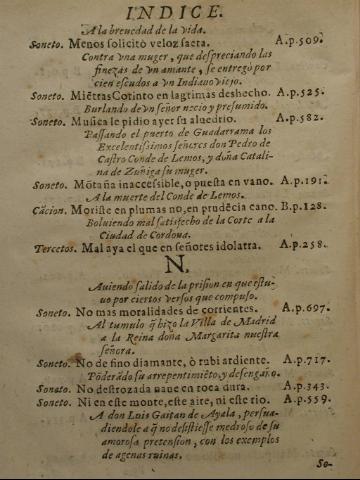 INDICE.
A la breuedad de la vida.
Soneto. Menos solicitò veloz saeta. A.p.509.
Contra vna muger, que despreciando las
finezas de vn amante, se entregò por
cien escudos a vn Indiano viejo.
Soneto. Miẽtras Corinto en lagrimas deshecho. A.p.525.
Burlando de vn señor necio y presumido.
Soneto. Musica le pidio ayer su aluedrio. A.p.582.
Passando el puerto de Guadarrama los
Excelentissimos señores don Pedro de
Castro Conde de Lemos, y doña Catali-
na de Zuñiga su muger.
Soneto. Mõtaña inaccessible, o puesta en vano. A.p.191.
A la muerte del Conde de Lemos.
Cãcion. Moriste en plumas no, en prudẽcia cano. B.p.128.
Boluiendo mal satisfecho de la Corte a la
Ciudad de Cordoua.
Tercetos. Mal aya el que en señores idolatra. A.p.258.
N.
Auiendo salido de la prision en que estu-
uo por ciertos versos que compuso.
Soneto. No mas moralidades de corrientes. A.p.697.
Al tumulo q̃ hizo la Villa de Madrid
a la Reina doña Margarita nuestra
señora.
Soneto. No de fino diamante, ò rubi ardiente. A.p.717.
Põderãdo su arrepentimiẽto, y desengaño.
Soneto. No destrozada naue en roca dura. A.p.343.
Soneto. Ni en este monte, este aire, ni este rio. A.p.559.
A don Luis Gaitan de Ayala, persua-
diendole a q̃ no desistiesse medroso de su
amorosa pretension, con los exemplos
de agenas ruinas.
So-